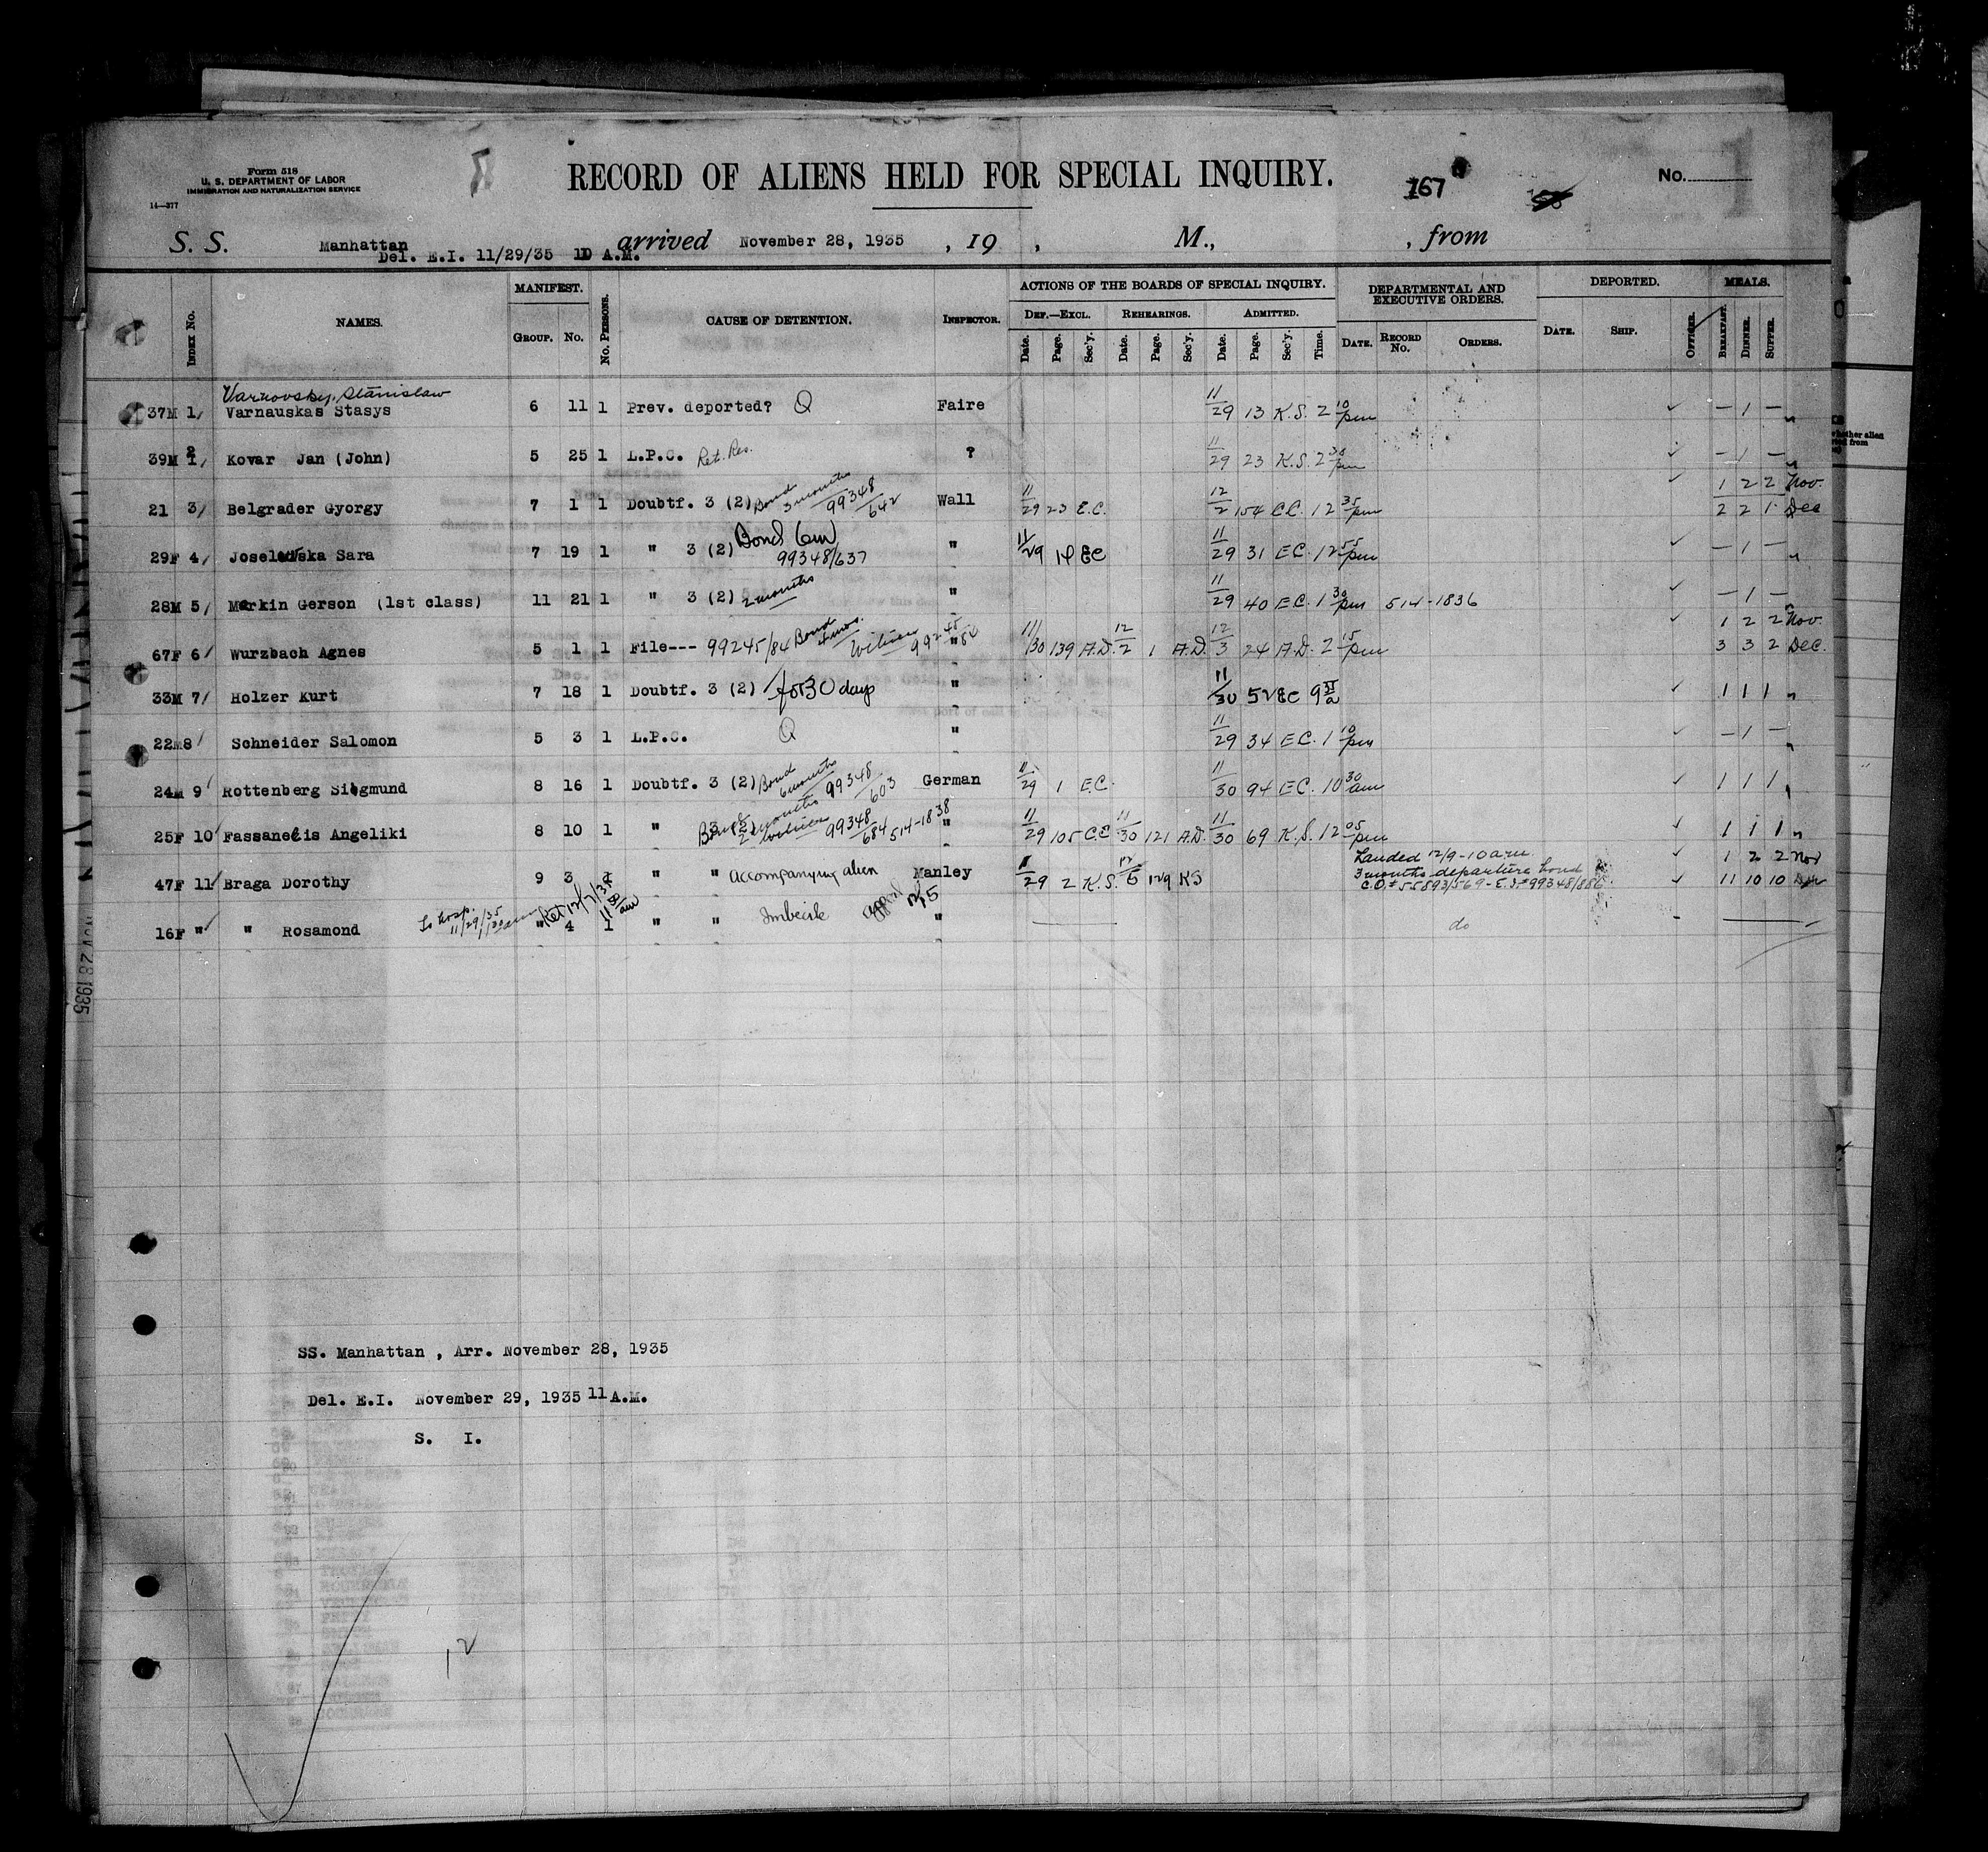 Form 518
U. S. DEPARTMENT OF LABOR
IMMIGRATION AND NATURALIZATION SERVICE
14—377
RECORD OF ALIENS HELD FOR SPECIAL INQUIRY.
167
No.
S. S. Manhattan arrived November 28, 1935, 19 , M., , from
Del. E.I. 11/29/35 10 A.M.
INDEX No. NAMES. MANIFEST. GROUP. No. No. PERSONS. CAUSE OF DETENTION. INSPECTOR. ACTIONS OF THE BOARDS OF SPECIAL INQUIRY. DEPARTMENTAL AND EXECUTIVE ORDERS. DEPORTED. MEALS.
DEF.—EXCL. REHEARINGS. ADMITTED.
Date. Page. Sec'y. Date. Page. Sec'y. Date. Page. Sec'y. Time. DATE. RECORD No. ORDERS. DATE. SHIP. OFFICER. BREAKFAST. DINNER. SUPPER.
Varnovsky, Stanislaw
37M 1 Varnauskas Stasys 6 11 1 Prev. deported? Q Faire 11/29 13 K.S. 2 10 pm — 1 — "
39M 2 Kovar Jan (John) 5 25 1 L.P.C. Ret. Res. ? 11/29 23 K.S. 2 30 pm — 1 — "
21 3 Belgrader Gyorgy 7 1 1 Doubtf. 3 (2) Bond 3 months 99348/642 Wall 11/29 23 E.C. 12/2 154 E.C. 12 35 pm 1 2 2 Nov.
2 2 1 Dec
29F 4 Joselewska Sara 7 19 1 " 3 (2) Bond 6m 99348/637 " 11/29 14 EC 11/29 31 EC. 12 55 pm — 1 — "
28M 5 Markin Gerson (1st class) 11 21 1 " 3 (2) 2 months " 11/29 40 E.C. 1 30 pm 514-1836 — 1 — "
67F 6 Wurzbach Agnes 5 1 1 File--- 99245/84 Bond 4 mos. 99245/84 " 11/30 139 A.D. 12/2 1 A.D. 12/3 24 A.D. 2 15 pm 1 2 2 Nov.
3 3 2 Dec.
33M 7 Holzer Kurt 7 18 1 Doubtf. 3 (2) for 30 days " 11/30 52 EC 9 a 1 1 1 "
22M 8 Schneider Salomon 5 3 1 L.P.C. Q " 11/29 34 E.C. 1 10 pm — 1 — "
24M 9 Rottenberg Siegmund 8 16 1 Doubtf. 3 (2) Bond 6 months 99348/603 German 11/29 1 E.C. 11/30 94 E.C. 10 30 am 1 1 1 "
25F 10 Fassanelis Angeliki 8 10 1 " Bond 2 months 99348/684 514-1838 " 11/29 105 C.E. 11/30 121 A.D. 11/30 69 K.S. 12 05 pm 1 1 1 "
47F 11 Braga Dorothy 9 3 " " accompanying alien Manley 11/29 2 K.S. 12/5 129 KS Landed 12/9 - 10 am 1 2 2 Nov
3 months departure bond
C.O.# 55893/569 - E.I.# 99348/886 11 10 10 Dec
16F " " Rosamond To Hosp. 11/29/35 Ret 12/7/35 11 50 am " 4 1 " " Imbecile appeal 12/5 " do
NOV 28 1935
SS. Manhattan , Arr. November 28, 1935
Del. E.I. November 29, 1935 11 A.M.
S. I.
12